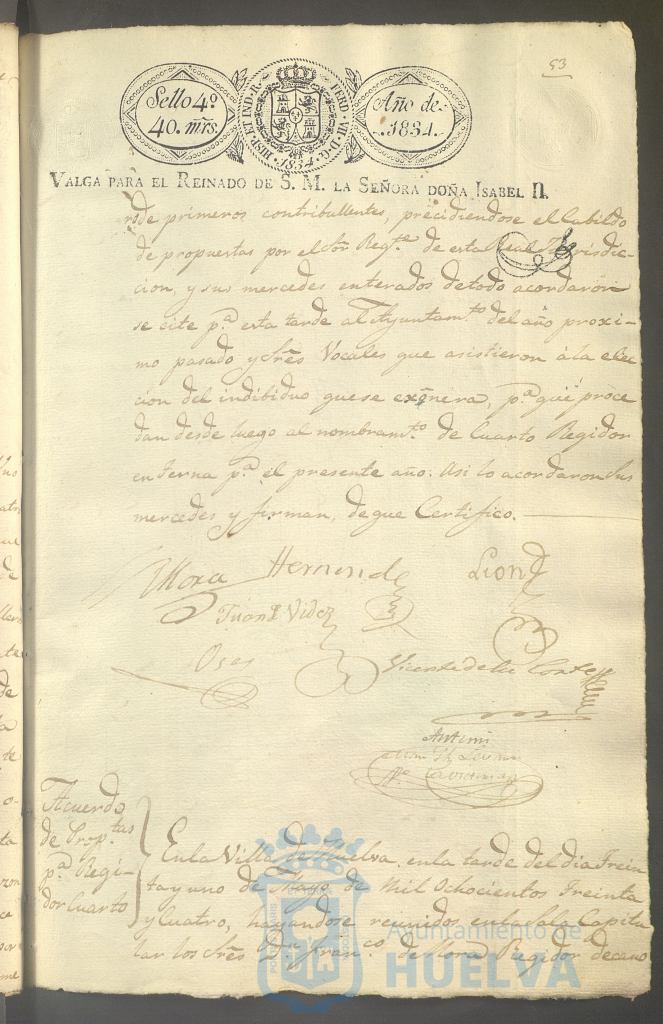 53
Sello 4º
40. mrs.
HISP. ET IND. R. FERD. VII. D. G. 1834.
Año de
1834.
VALGA PARA EL REINADO DE S. M. LA SEÑORA DOÑA ISABEL II.
de primeros contribullentes, precidiendose el Cabildo
de propuestas por el Sor Regte. de esta Real Jurisdic-
cion, y sus mercedes enterados de todo acordaron
se cite pa. esta tarde al Ayuntamto. del año proxi-
mo pasado y Sres Vocales que asistieron á la elec
cion del indibiduo que se exônera, pa. que proce
dan desde luego al nombramto. de Cuarto Regidor
en terna pa. el presente año. Asi lo acordaron Sus
mercedes y firman, de que Certifico.
Mora Hernand Leon
Juan Videz
Oses Vicente de la Corte
Antemi
Acuerdo
de Proptas
pa. Regi-
dor Cuarto
En la Villa de Huelva en la tarde del dia Trein
ta y uno de Mayo de Mil Ochocientos Treinta
y Cuatro, hayandose reunidos en la Sala Capitu
lar los Sres Dn. Franco. de Mora Regidor decano
Ayuntamiento de
HUELVA